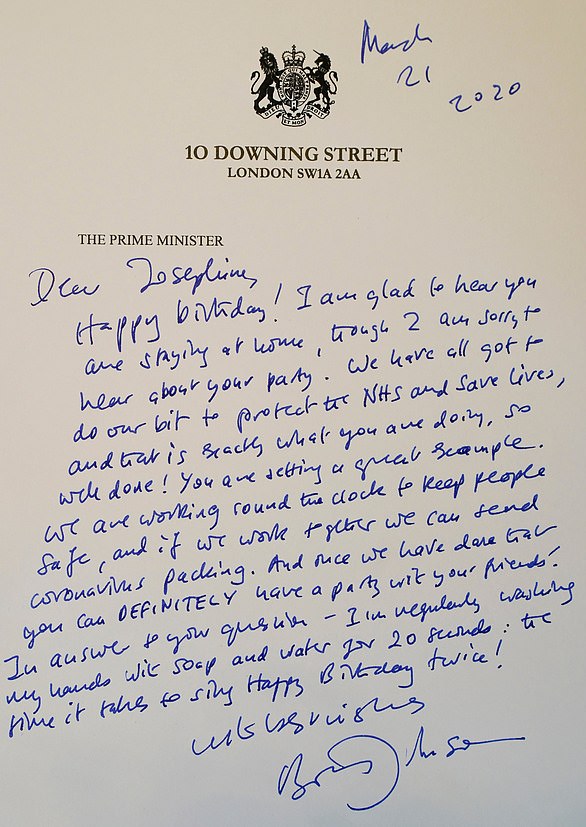 March
21
2020
DIEU ET MON DROIT
10 DOWNING STREET
LONDON SW1A 2AA
THE PRIME MINISTER
Dear Josephine,
Happy birthday! I am glad to hear you
are staying at home, though I am sorry to
hear about your party. We have all got to
do our bit to protect the NHS and save lives,
and that is exactly what you are doing, so
well done! You are setting a great example.
We are working round the clock to keep people
safe, and if we work together we can send
coronavirus packing. And once we have done that
you can DEFINITELY have a party with your friends!
In answer to your question – I'm regularly washing
my hands with soap and water for 20 seconds: the
time it takes to sing Happy Birthday twice!
with best wishes
Boris Johnson